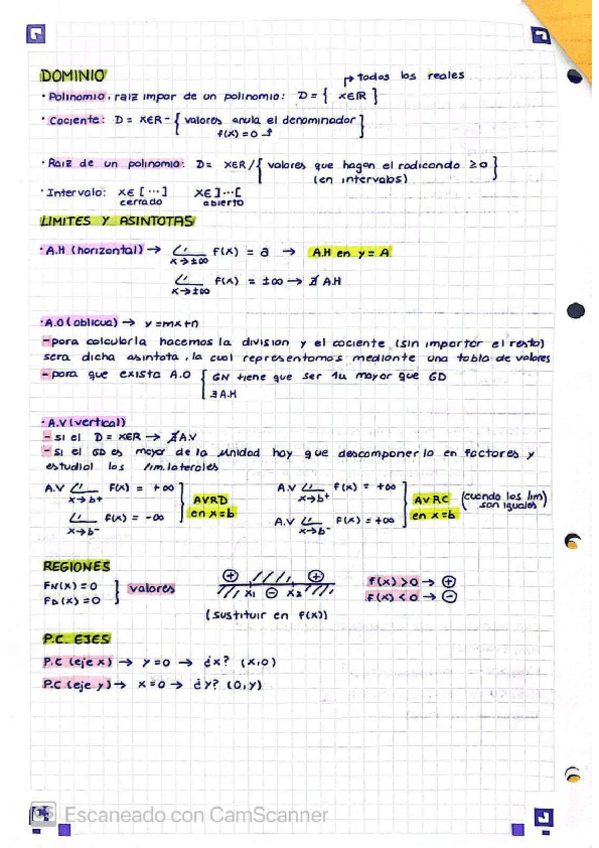 DOMINIO
→ todos los reales
· Polinomio, raiz impar de un polinomio: D = { x∈IR }
· Cociente: D = x∈R - { valores anula el denominador }
f(x)=0
· Raiz de un polinomio: D= x∈R/{ valores que hagan el radicando ≥0 }
(en intervalos)
· Intervalo: x∈ [ ··· ] x∈ ] ··· [
cerrado abierto
LIMITES Y ASINTOTAS
· A.H (horizontal) → Lim x→±∞ f(x) = a → A.H en y = A
Lim x→±∞ f(x) = ±∞ → ∄ A.H
· A.O (oblicua) → y=mx+n
- para calcularla hacemos la division y el cociente (sin importar el resto)
sera dicha asintota, la cual representamos mediante una tabla de valores
- para que exista A.O { GN tiene que ser 1u mayor que GD
∄ A.H
· A.V (vertical)
- si el D = x∈R → ∄ A.V
- si el GD es mayor de la unidad hay que descomponerlo en factores y
estudiar los lim. laterales
A.V Lim x→b+ f(x) = +∞ } AVRD A.V Lim x→b+ f(x) = +∞ } AVRC (cuando los lim
Lim x→b- f(x) = -∞ en x=b A.V Lim x→b- f(x) = +∞ en x=b son iguales)
REGIONES
FN(x)=0 } valores + x1 - x2 + f(x) > 0 → +
FD(x)=0 f(x) < 0 → -
(sustituir en f(x))
P.C. EJES
P.C (eje x) → y=0 → ¿x? (x,0)
P.C (eje y) → x=0 → ¿y? (0,y)
CS Escaneado con CamScanner